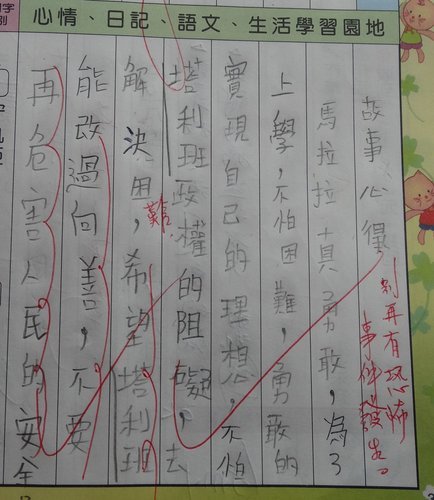 心情、日記、語文、生活學習園地
故事心得
馬拉拉真勇敢,為了
上學,不怕困難,勇敢的
實現自己的理想。不怕
塔利班政權的阻礙,去
解決困,希望塔利班
難
能改過向善,不要
再危害人民的安全
別再有恐怖
事件發生。